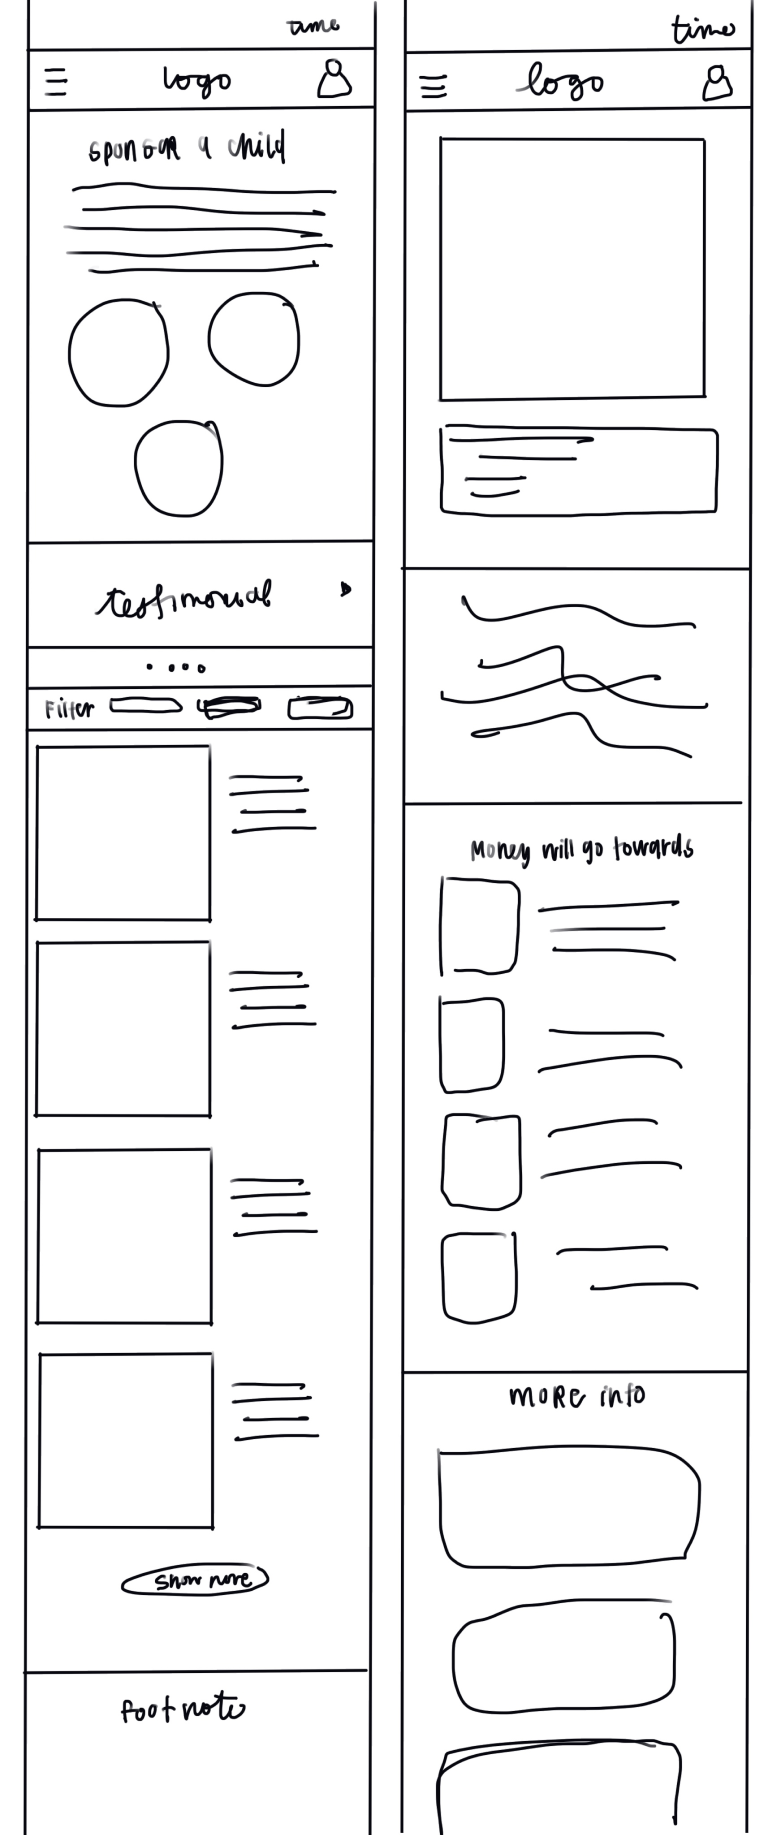 time
logo
sponsor a child
testimonial
Filter
show more
footnote
time
logo
Money will go towards
more info